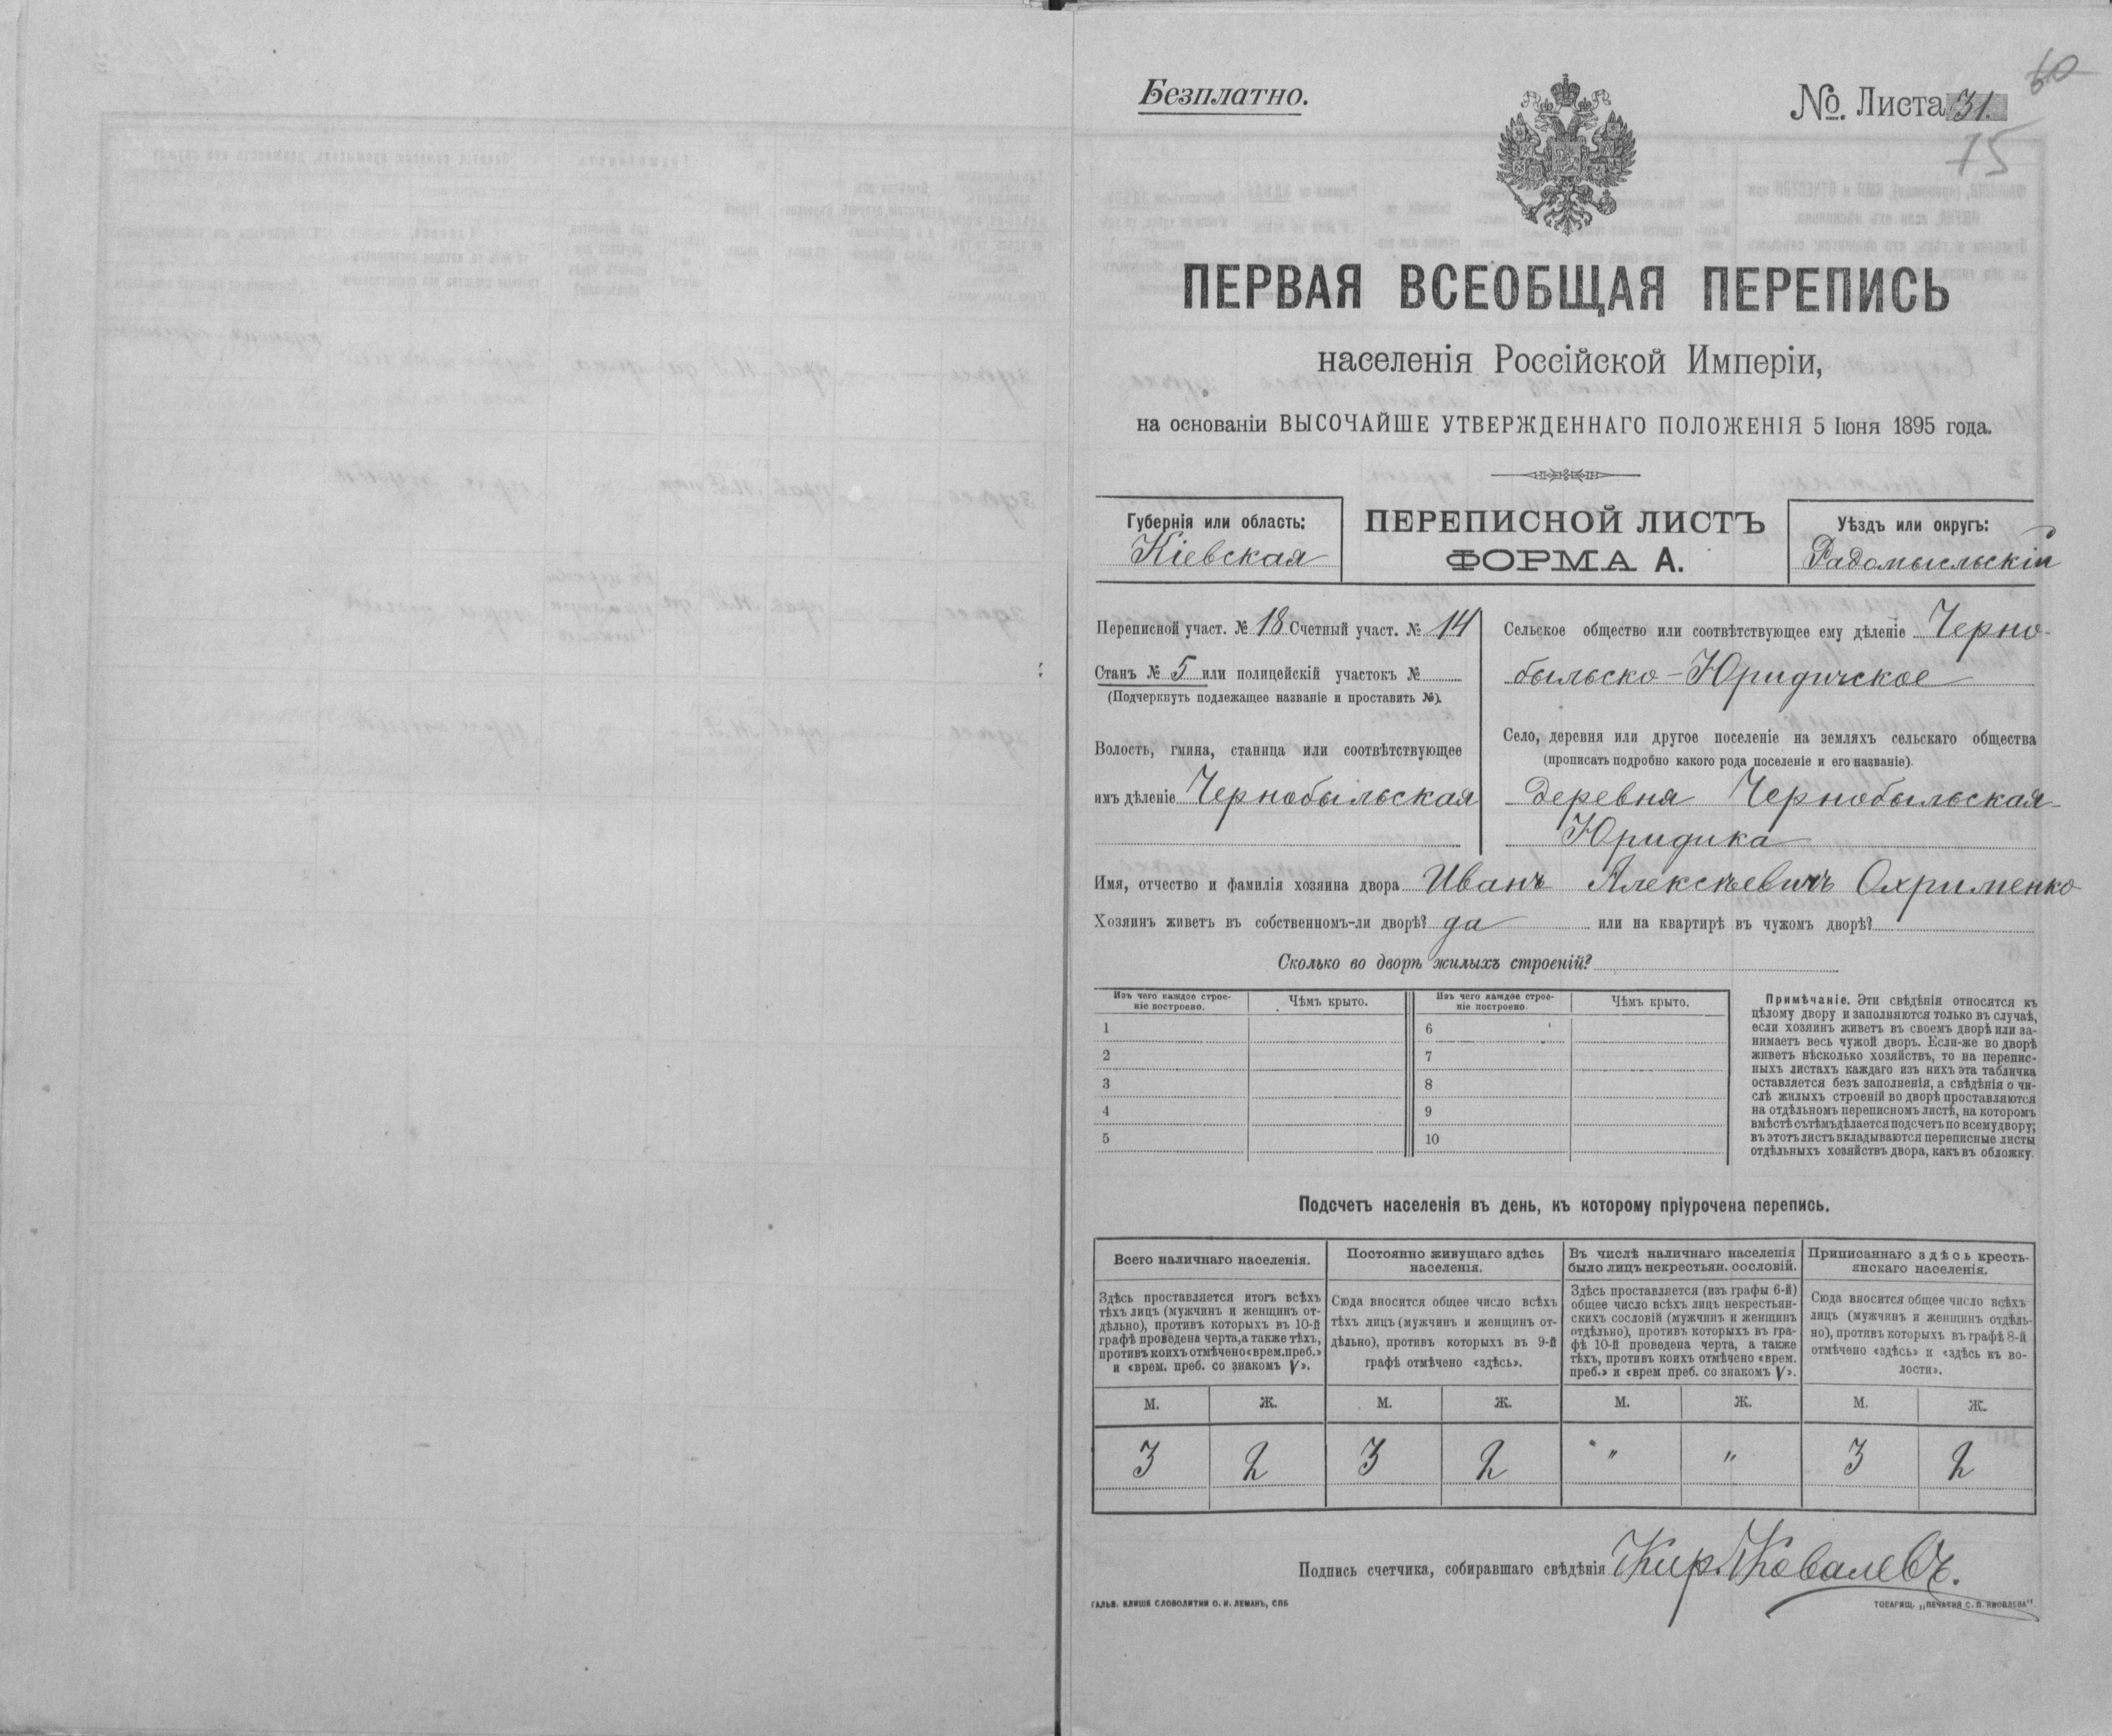 Безплатно.
№. Листа 31.
75
ПЕРВАЯ ВСЕОБЩАЯ ПЕРЕПИСЬ
населенія Россійской Имперіи,
на основаніи ВЫСОЧАЙШЕ УТВЕРЖДЕННАГО ПОЛОЖЕНІЯ 5 Іюня 1895 года.
Губернія или область:
Кіевская
ПЕРЕПИСНОЙ ЛИСТЪ
ФОРМА А.
Уѣздъ или округъ:
Радомысльскій
Переписной участ. № 18 Счетный участ. № 14
Станъ № 5 или полицейскій участокъ №
(Подчеркнуть подлежащее названіе и проставить №).
Волость, гмина, станица или соотвѣтствующее
имъ дѣленіе Чернобыльская
Сельское общество или соотвѣтствующее ему дѣленіе Черно-
быльско-Юридическое
Село, деревня или другое поселеніе на земляхъ сельскаго общества
(прописать подробно какого рода поселеніе и его названіе).
Деревня Чернобыльская-
Юридика
Имя, отчество и фамилія хозяина двора Иванъ Алексѣевичъ Охрименко
Хозяинъ живетъ въ собственномъ-ли дворѣ? да или на квартирѣ въ чужомъ дворѣ?
Сколько во дворѣ жилыхъ строеній?
Изъ чего каждое строе-
ніе построено.
Чѣмъ крыто.
Изъ чего каждое строе-
ніе построено.
Чѣмъ крыто.
1 6
2 7
3 8
4 9
5 10
Примѣчаніе. Эти свѣдѣнія относятся къ
цѣлому двору и заполняются только въ случаѣ,
если хозяинъ живетъ въ своемъ дворѣ или за-
нимаетъ весь чужой дворъ. Если-же во дворѣ
живетъ нѣсколько хозяйствъ, то на перепис-
ныхъ листахъ каждаго изъ нихъ эта табличка
оставляется безъ заполненія, а свѣдѣнія о чи-
слѣ жилыхъ строеній во дворѣ проставляются
на отдѣльномъ переписномъ листѣ, на которомъ
вмѣстѣ съ тѣмъ дѣлается подсчетъ по всему двору;
въ этотъ листъ вкладываются переписные листы
отдѣльныхъ хозяйствъ двора, какъ въ обложку.
Подсчетъ населенія въ день, къ которому пріурочена перепись.
Всего наличнаго населенія.
Здѣсь проставляется итогъ всѣхъ
тѣхъ лицъ (мужчинъ и женщинъ от-
дѣльно), противъ которыхъ въ 10-й
графѣ проведена черта, а также тѣхъ,
противъ коихъ отмѣчено «врем. преб.»
и «врем. преб. со знакомъ V».
Постоянно живущаго здѣсь
населенія.
Сюда вносится общее число всѣхъ
тѣхъ лицъ (мужчинъ и женщинъ от-
дѣльно), противъ которыхъ въ 9-й
графѣ отмѣчено «здѣсь».
Въ числѣ наличнаго населенія
было лицъ некрестьян. сословій.
Здѣсь проставляется (изъ графы 6-й)
общее число всѣхъ лицъ некрестьян-
скихъ сословій (мужчинъ и женщинъ
отдѣльно), противъ которыхъ въ гра-
фѣ 10-й проведена черта, а также
тѣхъ, противъ коихъ отмѣчено «врем.
преб.» и «врем преб. со знакомъ V».
Приписаннаго здѣсь кресть-
янскаго населенія.
Сюда вносится общее число всѣхъ
лицъ (мужчинъ и женщинъ отдѣль-
но), противъ которыхъ въ графѣ 8-й
отмѣчено «здѣсь» и «здѣсь къ во-
лости».
М. Ж. М. Ж. М. Ж. М. Ж.
3 2 3 2 " " 3 2
Подпись счетчика, собиравшаго свѣдѣнія Кир. Ковалевъ.
ГАЛЬВ. КЛИШЕ СЛОВОЛИТНИ О. И. ЛЕМАНЪ, СПБ
ТОВАРИЩ. „ПЕЧАТНЯ С. П. ЯКОВЛЕВА"